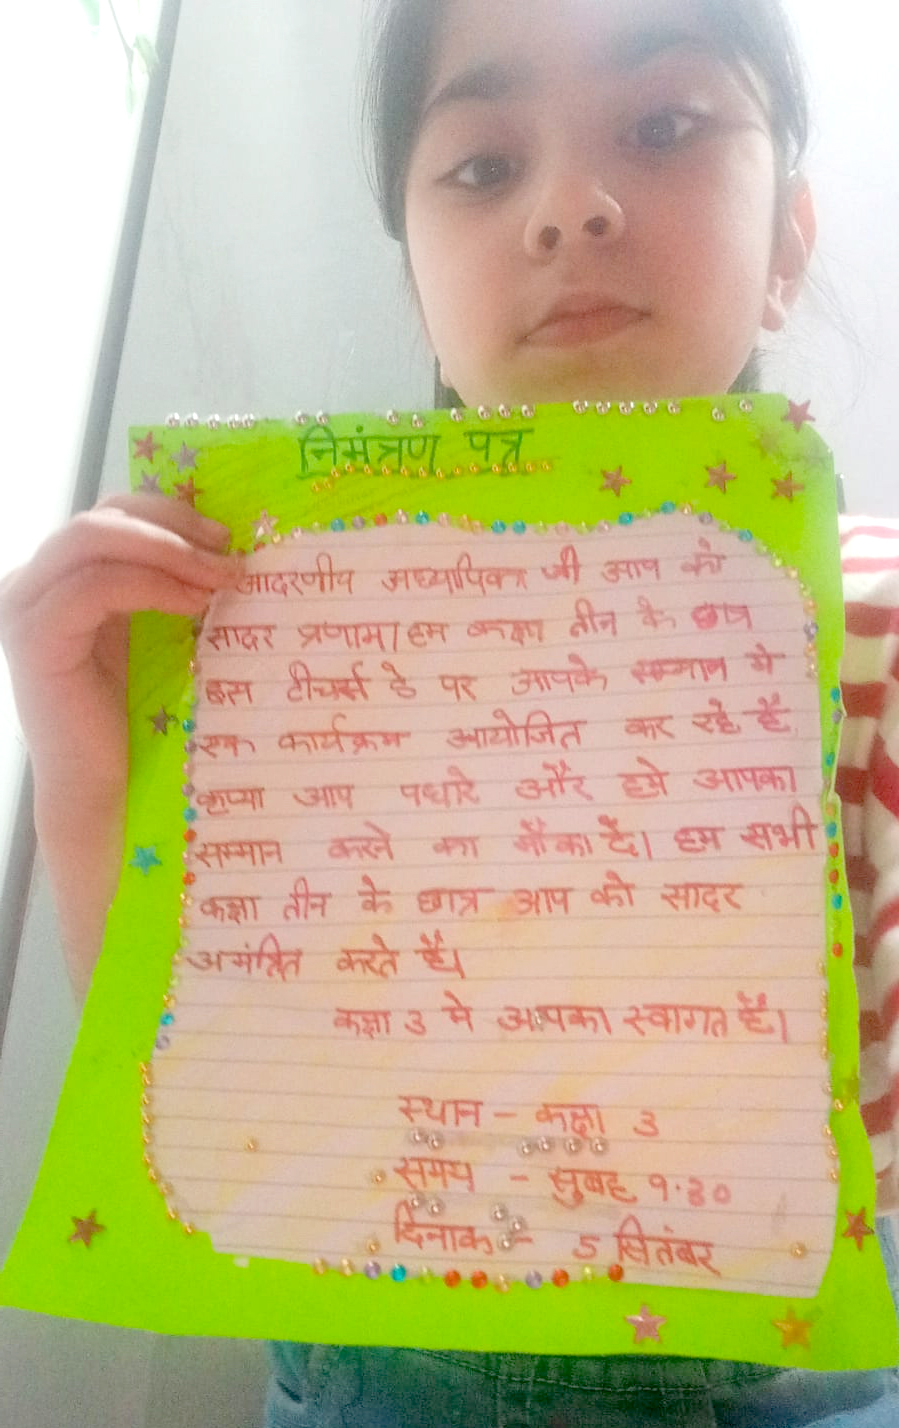 निमंत्रण पत्र
आदरणीय अध्यापिका जी आप को
सादर प्रणाम। हम कक्षा तीन के छात्र
इस टीचर्स डे पर आपके सम्मान मे
एक कार्यक्रम आयोजित कर रहे हैं
कृप्या आप पधारे और हमे आपका
सम्मान करने का मौका दें। हम सभी
कक्षा तीन के छात्र आप को सादर
अमंत्रित करते हैं।
कक्षा 3 मे आपका स्वागत हैं।
स्थान – कक्षा 3
समय – सुबह 9.30
दिनाक – 5 सितंबर